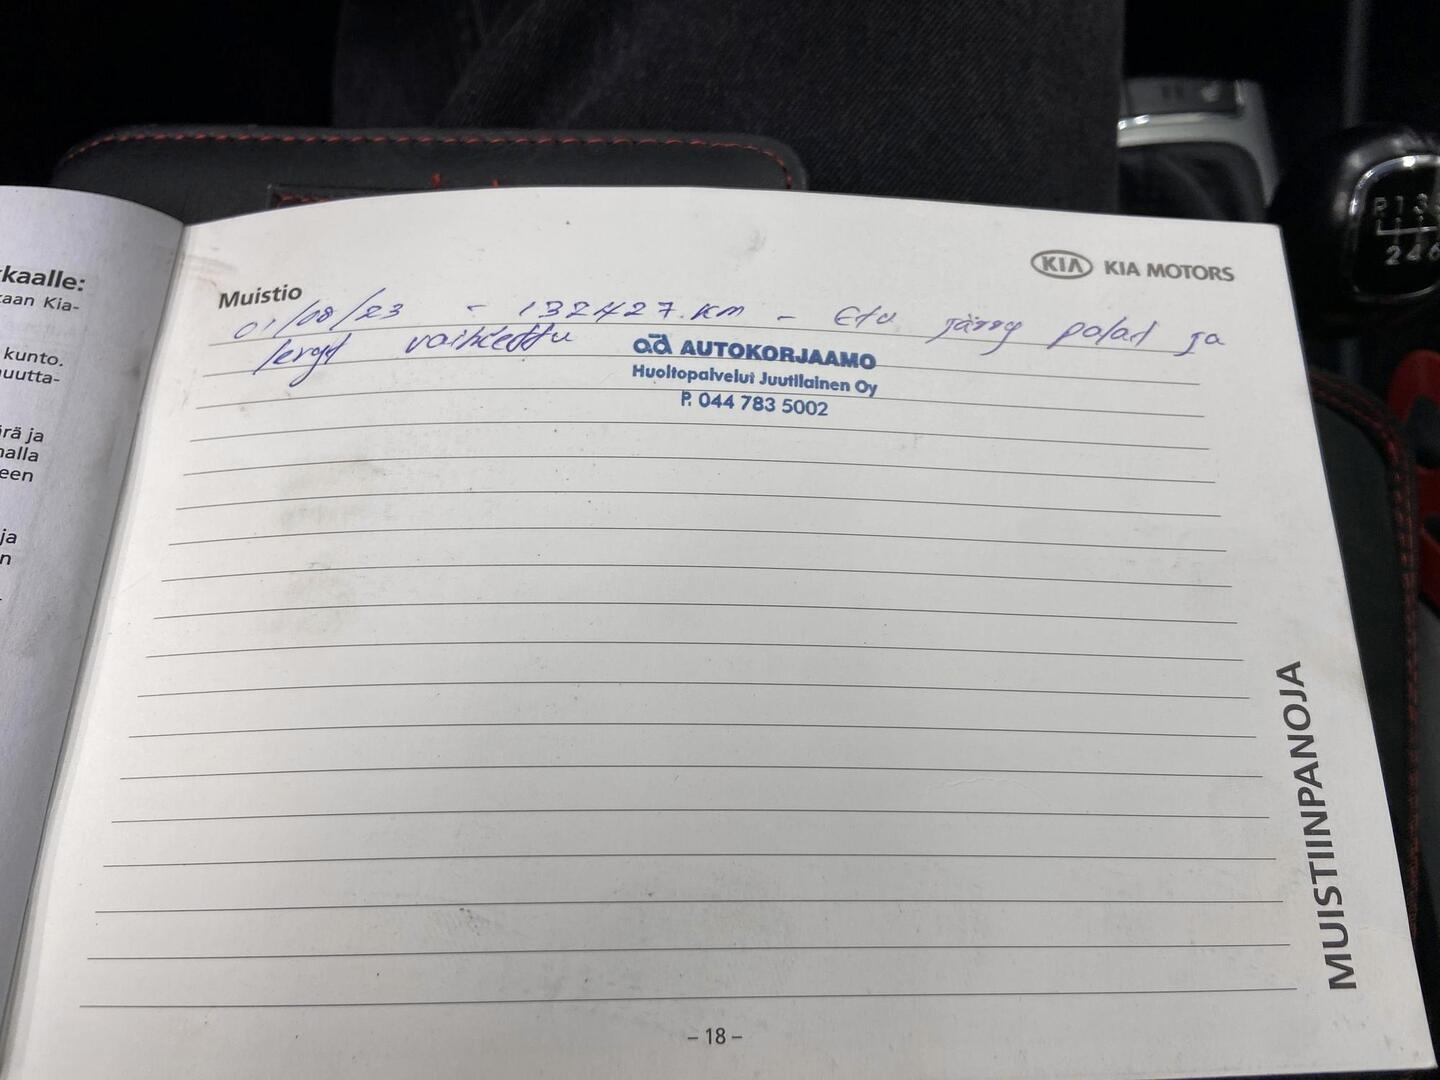 kkaalle:
kaan Kia-
kunto.
nuutta-
ärä ja
nalla
een
ja
n
KIA KIA MOTORS
Muistio
01/08/23 - 132427.km - Etu järry palat ja
levyt vaihdettu
ad AUTOKORJAAMO
Huoltopalvelut Juutilainen Oy
P. 044 783 5002
MUISTIINPANOJA
- 18 -
R 1 3 5
2 4 6